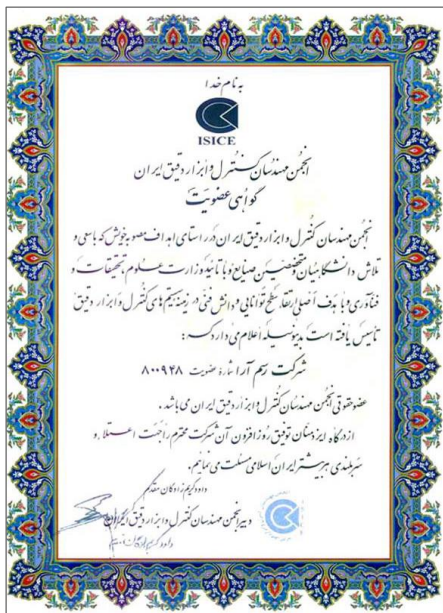 به نام خدا
ISICE
انجمن مهندسان کنترل و ابزار دقیق ایران
گواهی عضویت
انجمن مهندسان کنترل و ابزار دقیق ایران در راستای اهداف مصوبه خویش که با سعی و
تلاش دانشگاهیان و متخصصین صنایع و با تائید وزارت علوم، تحقیقات و
فناوری و با هدف اصلی ارتقاء سطح توانایی و دانش فنی در زمینه سیستم های کنترل و ابزار دقیق
تأسیس یافته است بدینوسیله اعلام می دارد که :
شرکت رهم آرا شماره عضویت ۸۰۰۹۴۸
عضو حقوقی انجمن مهندسان کنترل و ابزار دقیق ایران می باشد .
از درگاه ایزد منان توفیق روز افزون آن شرکت محترم را جهت اعتلاء و
سربلندی هر بیشتر ایران اسلامی مسئلت می نمائیم.
داود کریم زادگان مقدم
دبیر انجمن مهندسان کنترل و ابزار دقیق ایران